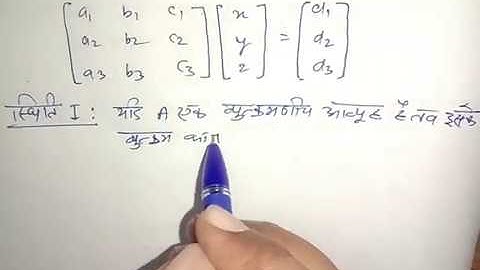 [a1 b1 c1] [x] = [d1]
[a2 b2 c2] [y] = [d2]
[a3 b3 c3] [z] = [d3]
स्थिति I : यदि A एक व्युत्क्रमणीय आव्यूह है तब इसके
व्युत्क्रम का